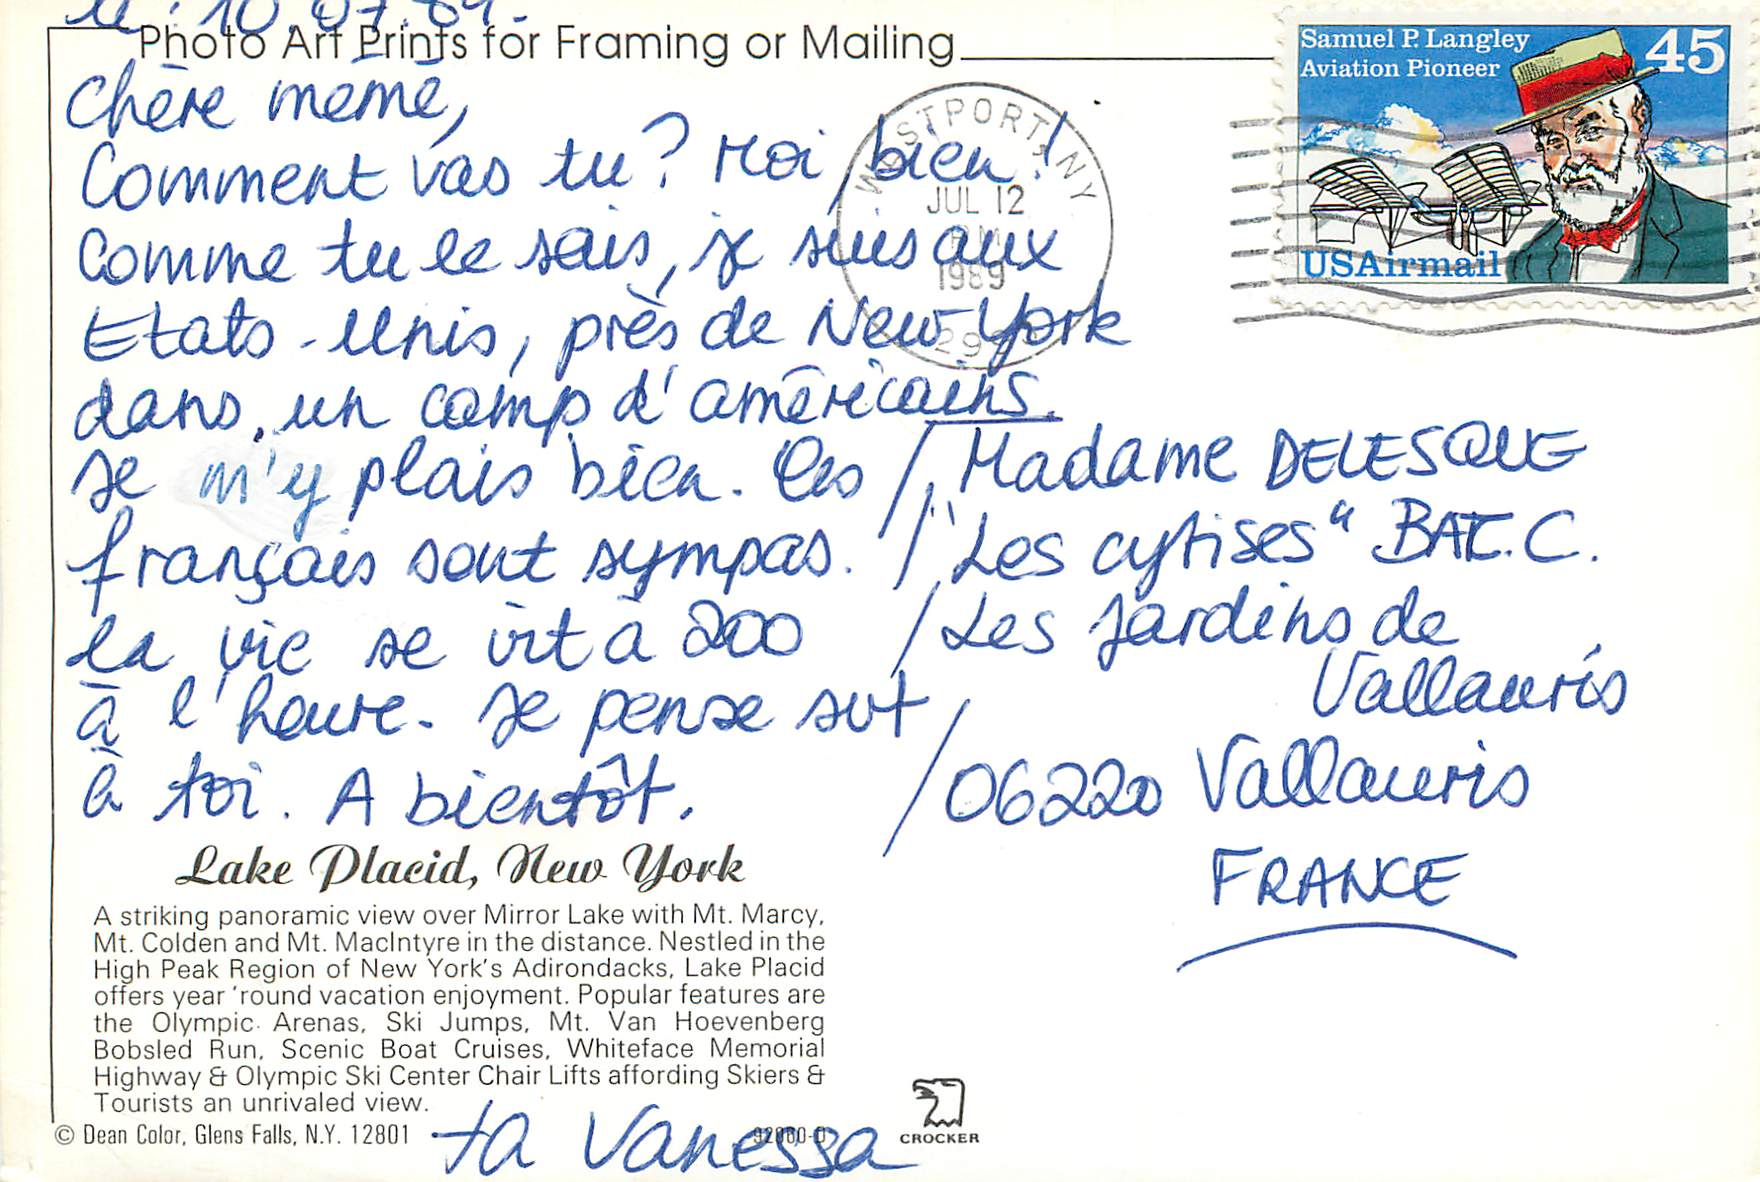 le : 10.07.89.
Photo Art Prints for Framing or Mailing
Chère mémé,
Comment vas tu? Moi, bien!
Comme tu le sais, je suis aux
Etats-Unis, près de New-York
dans, un camp d'américains.
Je m'y plais bien. Les
français sont sympas.
la vie se vit à 200
à l'heure. Je pense svt
à toi. A bientôt.
ta Vanessa
Lake Placid, New York
A striking panoramic view over Mirror Lake with Mt. Marcy,
Mt. Colden and Mt. MacIntyre in the distance. Nestled in the
High Peak Region of New York's Adirondacks, Lake Placid
offers year 'round vacation enjoyment. Popular features are
the Olympic Arenas, Ski Jumps, Mt. Van Hoevenberg
Bobsled Run, Scenic Boat Cruises, Whiteface Memorial
Highway & Olympic Ski Center Chair Lifts affording Skiers &
Tourists an unrivaled view.
© Dean Color, Glens Falls, N.Y. 12801
CROCKER
WESTPORT, NY
JUL 12
PM
1989
Samuel P. Langley
Aviation Pioneer
45
USAirmail
Madame DELESQUE
"Les cytises" BAT. C.
Les Jardins de
Vallauris
06220 Vallauris
FRANCE